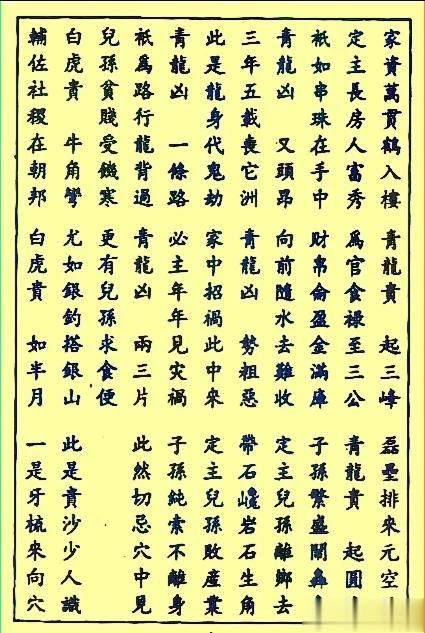 家資萬貫鶴入樓 青龍貴 起三峰 磊壘排來元空
定主長房人富秀 為官食祿至三公 青龍貴 起圓
祇如串珠在手中 財帛侖盈金滿庫 子孫繁盛鬧轟
青龍凶 又頭昂 向前隨水去難收 定主兒孫離鄉去
三年五載喪它洲 青龍凶 勢祖惡 帶石巉岩石生角
此是龍身代鬼劫 家中招禍此中來 定主兒孫敗産業
青龍凶 一條路 必主年年見災禍 子孫純索不離身
祇為路行龍背過 青龍凶 兩三片 此然切忌穴中見
兒孫貧賤受饑寒 更有兒孫求食便
白虎貴 牛角彎 尤如銀釣搭銀山 此是貴沙少人識
輔佐社稷在朝邦 白虎貴 如半月 一是牙梳來向穴